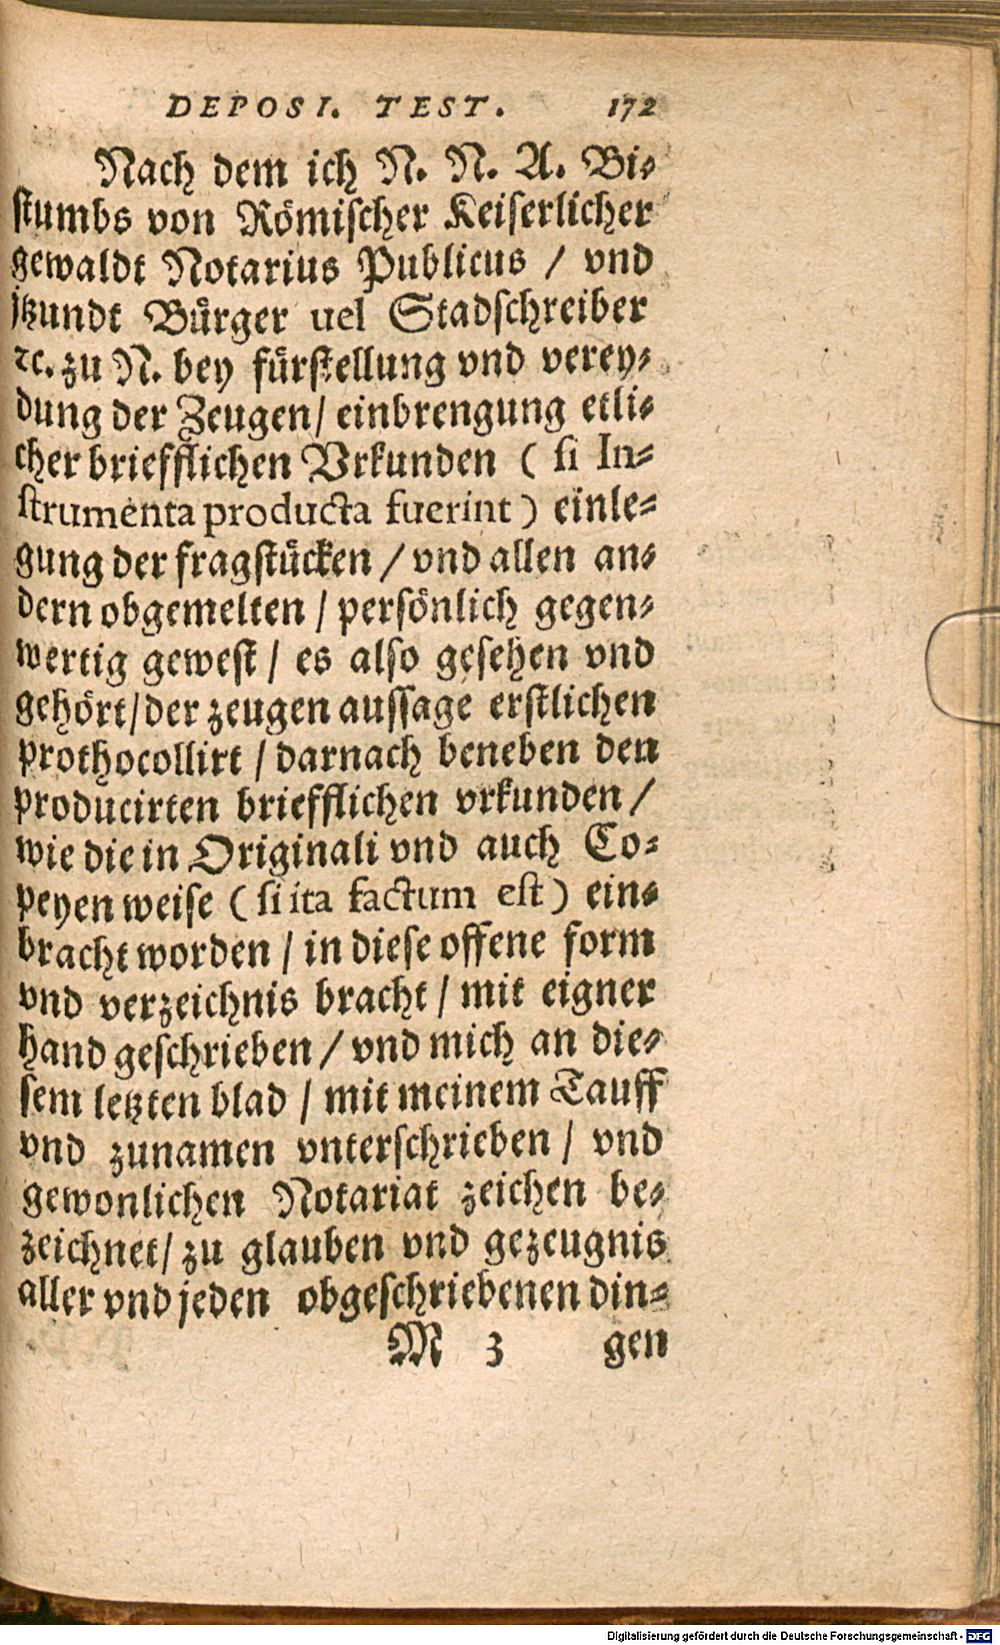 DEPOSI. TEST. 172
Nach dem ich N. N. A. Bi⸗
ſtumbs von Roͤmiſcher Keiſerlicher
gewaldt Notarius Publicus / vnd
jtzundt Buͤrger uel Stadſchreiber
ꝛc. zu N. bey fuͤrſtellung vnd verey⸗
dung der Zeugen/ einbrengung etli⸗
cher briefflichen Vrkunden ( ſi In⸗
ſtrumenta producta fuerint) einle⸗
gung der fragſtuͤcken / vnd allen an⸗
dern obgemelten / perſoͤnlich gegen⸗
wertig geweſt / es alſo geſehen vnd
gehoͤrt/ der zeugen auſſage erſtlichen
prothocollirt / darnach beneben den
producirten briefflichen vrkunden /
wie die in Originali vnd auch Co⸗
peyen weiſe ( ſi ita factum eſt) ein⸗
bracht worden / in dieſe offene form
vnd verzeichnis bracht / mit eigner
hand geſchrieben / vnd mich an die⸗
ſem letzten blad / mit meinem Tauff
vnd zunamen vnterſchrieben / vnd
gewonlichen Notariat zeichen be⸗
zeichnet/ zu glauben vnd gezeugnis
aller vnd jeden obgeſchriebenen din⸗
M 3 gen
Digitalisierung gefördert durch die Deutsche Forschungsgemeinschaft - DFG